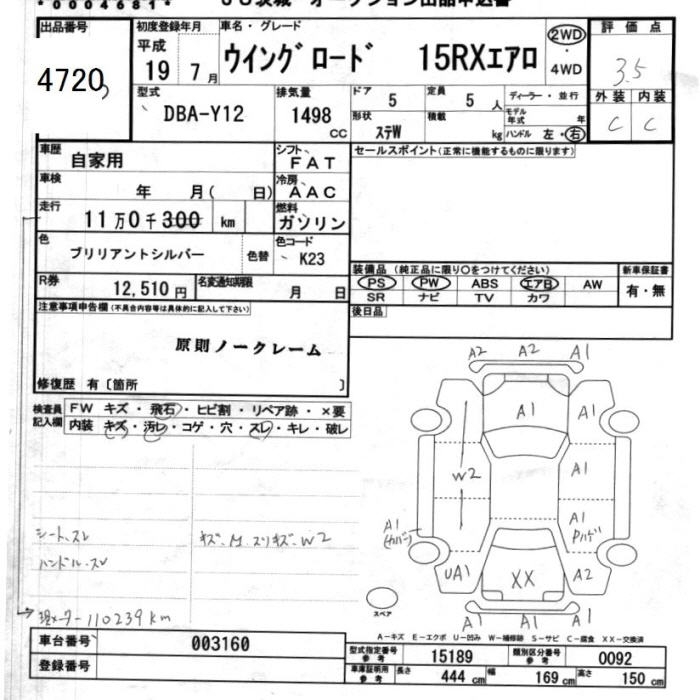 *00046814*
出品番号
4720
初度登録年月
平成
19 7月
車名・グレード
ウイングロード 15RXエアロ
2WD
・
4WD
評価点
3.5
外装 内装
C C
型式
DBA-Y12
排気量
1498
CC
ドア
5
定員
5 人
形状
ステW
積載
kg
ディーラー・並行
モデル年式 年
ハンドル 左・右
車歴
自家用
シフト
FAT
車検
年 月( 日)
冷房
AAC
走行
11万0千300 km
燃料
ガソリン
色
ブリリアントシルバー
色替
色コード
K23
R券
12,510円
名変通知期限
月 日
セールスポイント(正常に機能するものに限ります)
装備品(純正品に限り○をつけてください)
PS PW ABS エアB AW
SR ナビ TV カワ
新車保証書
有・無
後日品
注意事項申告欄(不具合内容等は具体的に記入して下さい)
原則ノークレーム
修復歴 有〔箇所 〕
検査員記入欄
FW キズ・飛石・ヒビ割・リペア跡・×要
内装 キズ・汚レ・コゲ・穴・スレ・キレ・破レ
シート、スレ
ハンドル、スレ
キズ、M、スリキズ、W2
現メーター110239km
A2 A2 A1
A1 A1
W2 A1
A1
(カバー)
A1
Pハゲ
UA1 XX A2
A1 A1 A1
スペア
A-キズ E-エクボ U-凹み W-補修跡 S-サビ C-腐食 XX-交換済
車台番号
003160
登録番号
型式指定番号
参考
15189
類別区分番号
参考
0092
車庫証明用
参考
長さ 444 cm
幅 169 cm
高さ 150 cm